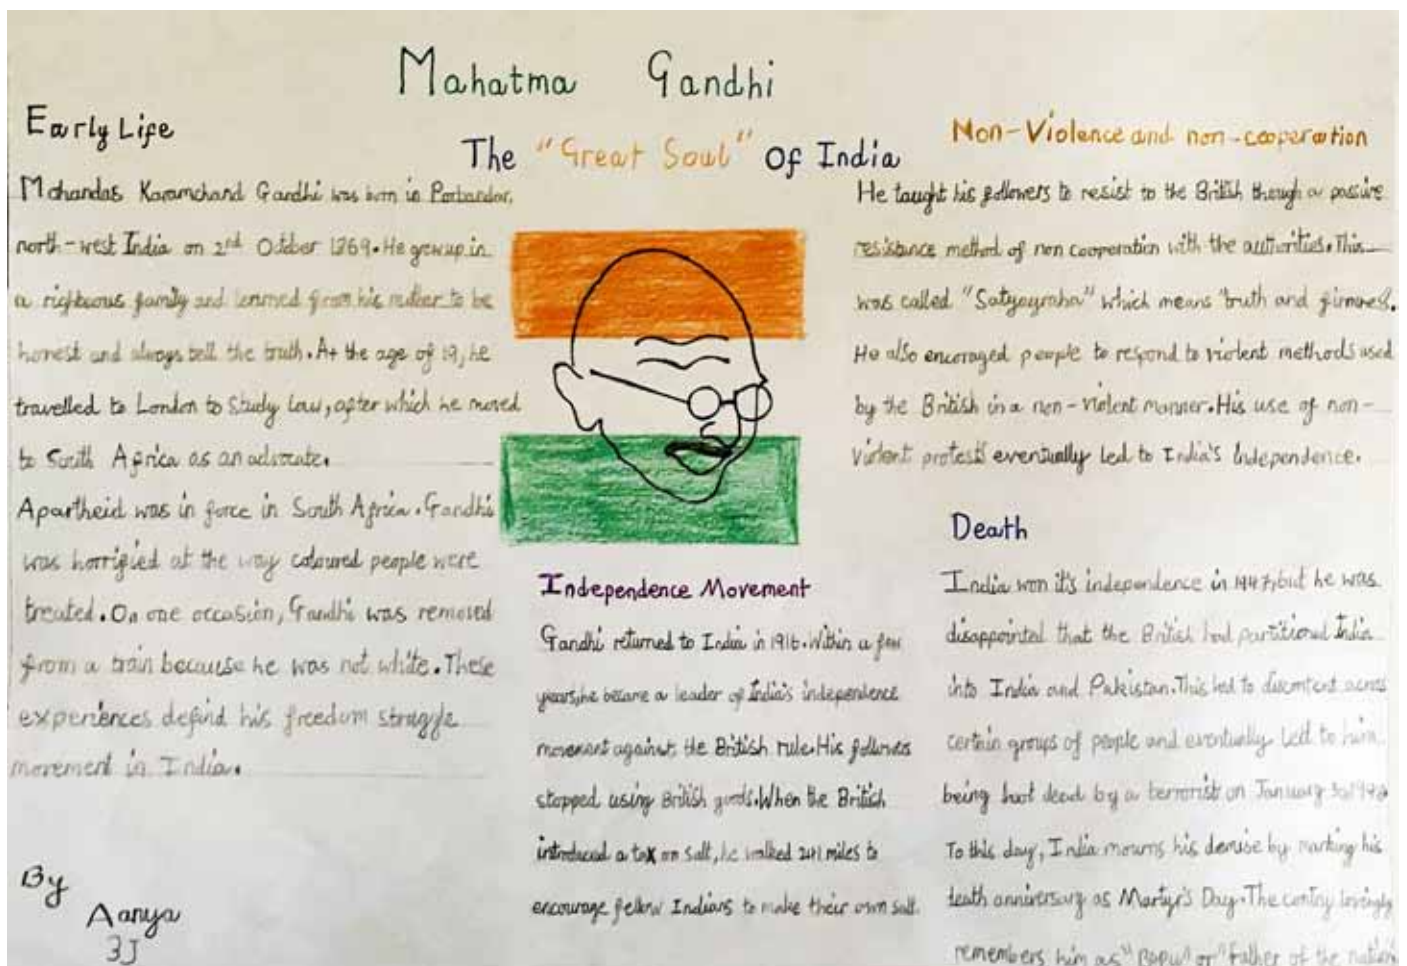 Mahatma Gandhi
The "Great Soul" Of India
Early Life
Mohandas Karamchand Gandhi was born in Porbandar,
north-west India on 2nd October 1869. He grew up in
a righteous family and learned from his mother to be
honest and always tell the truth. At the age of 19, he
travelled to London to Study law, after which he moved
to South Africa as an advocate.
Apartheid was in force in South Africa. Gandhi
was horrified at the way coloured people were
treated. On one occasion, Gandhi was removed
from a train because he was not white. These
experiences defind his freedom struggle
movement in India.
By
Aanya
3J
Independence Movement
Gandhi returned to India in 1916. Within a few
years, he became a leader of India's independence
movement against the British rule. His
stopped using British goods. When the British
introduced a tax on salt, he walked 241 miles to
encourage fellow Indians to make their own salt.
Non-Violence and non-cooperation
He taught his followers to resist to the British though a passive
resistance method of non cooperation with the authorities. This
was called "Satyagraha" which means "truth and firmness".
He also encoraged people to respond to violent methods used
by the British in a non-violent manner. His use of non-
violent protests eventually led to India's Independence.
Death
India won it's independence in 1947, but he was
disappointed that the British had partitioned India
into India and Pakistan. This led to discontent across
certain groups of people and eventually led to him
being hot dead by a terrorist on January 30 1948
To this day, India mourns his demise by marking his
death anniversary as Martyr's Day. The contry lovingly
remembers him as or "Father of the nation